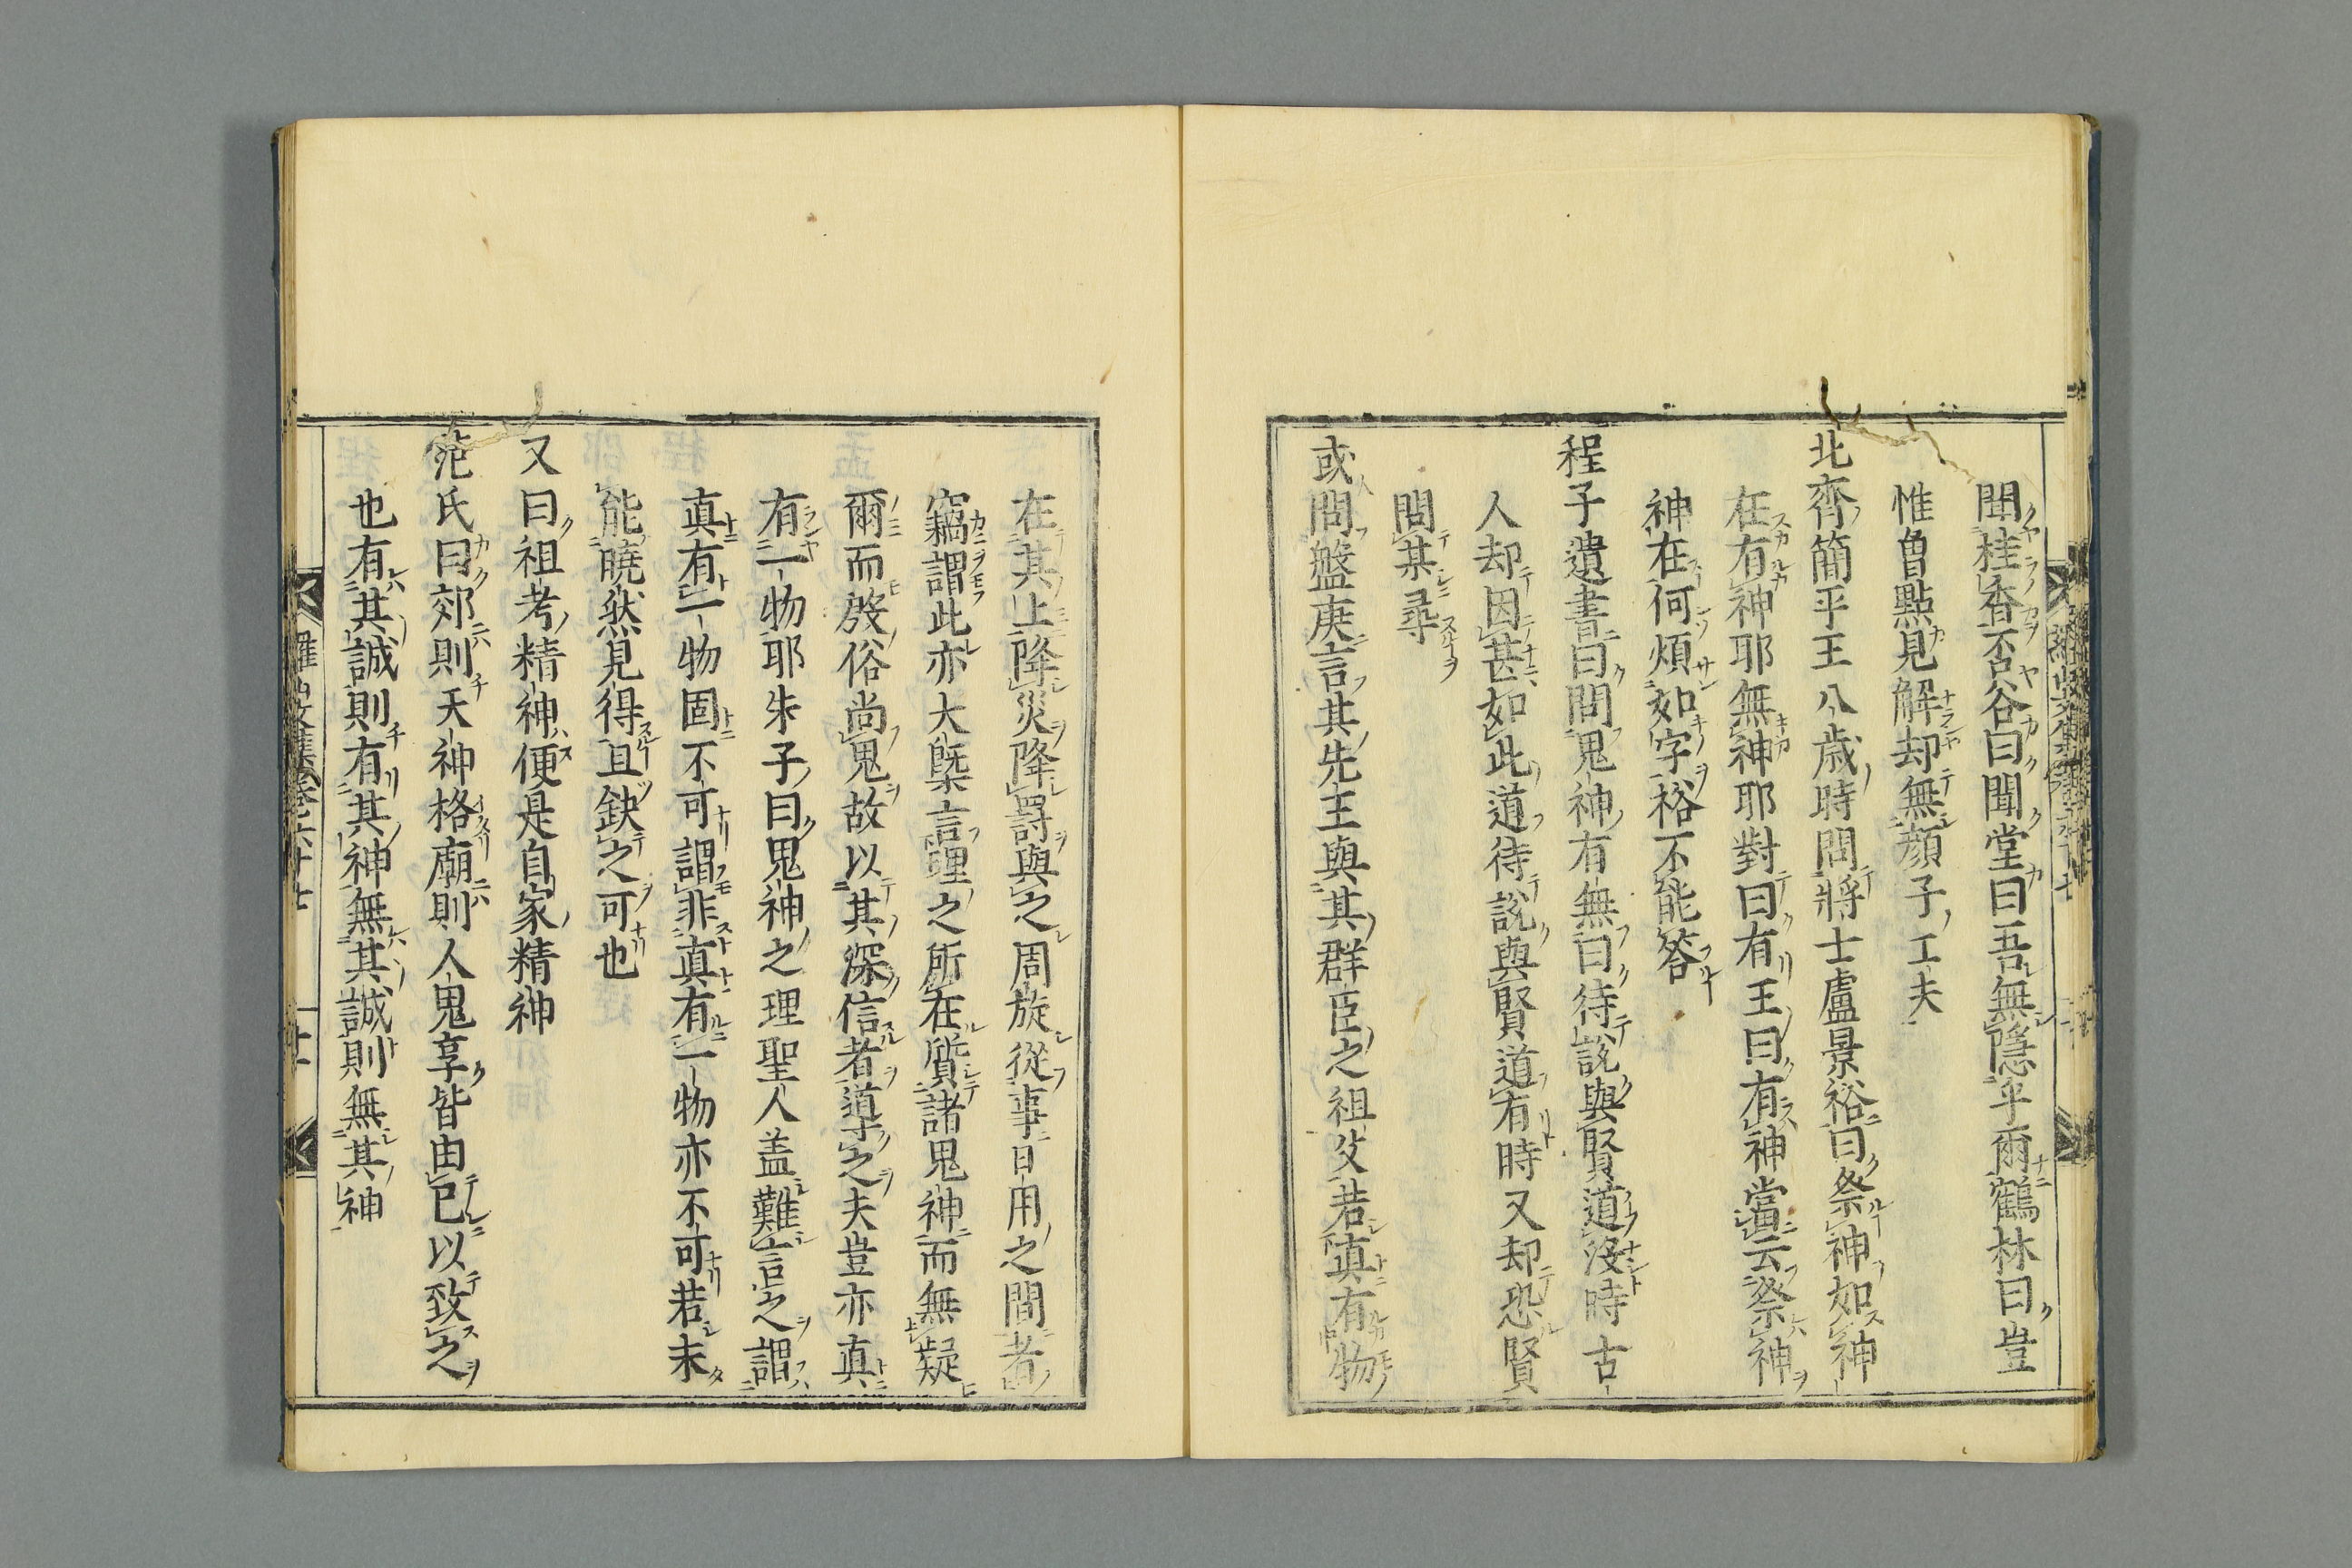 聞桂香否谷曰聞堂曰吾無隱乎爾鶴林曰豈
惟曾點見解却無顔子工夫
北齊簡平王八歳時問將士盧景裕曰祭神如神
在有神耶無神耶對曰有王曰有神當云祭神
神在何煩如字裕不能答
程子遺書曰問鬼神有無曰待說與賢道沒時古
人却因甚如此道待說與賢道有時又却恐賢
問某尋
或問盤庚言其先王與其群臣之祖父若真有物
在其上降災降罰與之周旋從事日用之間者
竊謂此亦大槩言理之所在質諸鬼神而無疑
爾而殷俗尚鬼故以其深信者導之夫豈亦真
有一物耶朱子曰鬼神之理聖人盖難言之謂
真有一物固不可謂非真有一物亦不可若未
能曉然見得且缺之可也
又曰祖考精神便是自家精神
范氏曰郊則天神格廟則人鬼享皆由已以致之
也有其誠則有其神無其誠則無其神